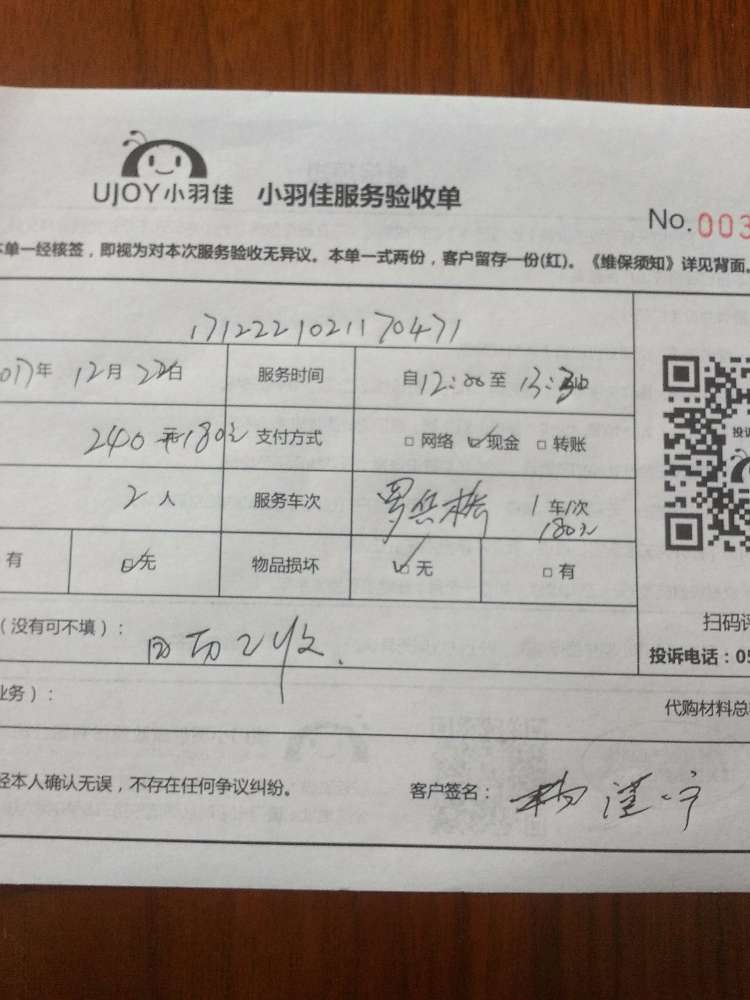 UJOY小羽佳 小羽佳服务验收单
No.003
本单一经核签，即视为对本次服务验收无异议。本单一式两份，客户留存一份(红)。《维保须知》详见背面。
1712221021170471
2017年 12月 22日 服务时间 自12:00至 13:30
240 180元 支付方式 □网络 ☑现金 □转账
2人 服务车次 1车/次
180元
有 ☑无 物品损坏 ☑无 □有
扫码评
（没有可不填）：
投诉电话：05
业务）：
代购材料总
经本人确认无误，不存在任何争议纠纷。 客户签名：